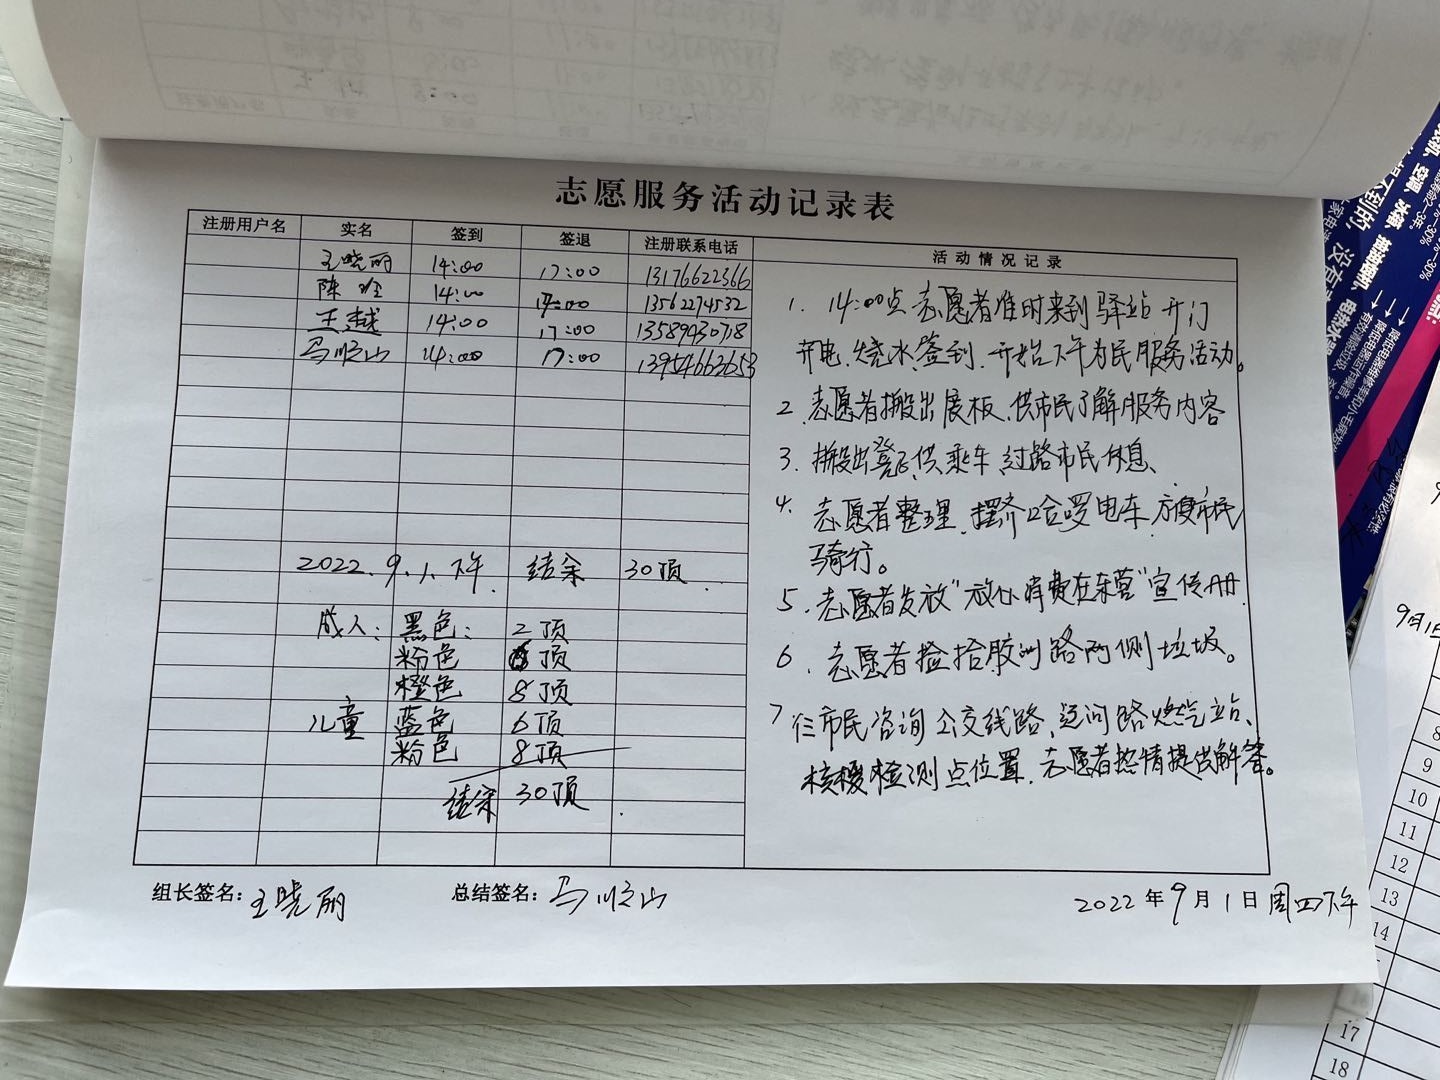 志愿服务活动记录表
注册用户名 实名 签到 签退 注册联系电话 活动情况记录
王晓丽 14:00 17:00 13176622366
陈 14:00 17:00 13562274532
王越 14:00 17:00 13589430718
马顺山 14:00 17:00 13954663653
2022.9.1.下午 结余 30顶
成人: 黑色: 2顶
粉色 6顶
橙色 8顶
儿童 蓝色 6顶
粉色 8顶
结余 30顶
1. 14:00点志愿者准时来到驿站开门
开电、烧水、签到、开始下午为民服务活动。
2. 志愿者搬出展板、供市民了解服务内容
3. 搬出凳子、供乘车、过路市民休息、
4. 志愿者整理、摆齐哈啰电车、方便市民
骑行。
5. 志愿者发放“放心消费在东营”宣传册.
6. 志愿者捡拾胶州路两侧垃圾。
7 仨市民咨询公交线路、近问路燃气站、
核酸检测点位置、志愿者热情提供解答。
组长签名: 王晓丽 总结签名: 马顺山 2022年9月1日周四下午
9月1日
8
9
10
11
12
13
14
17
18